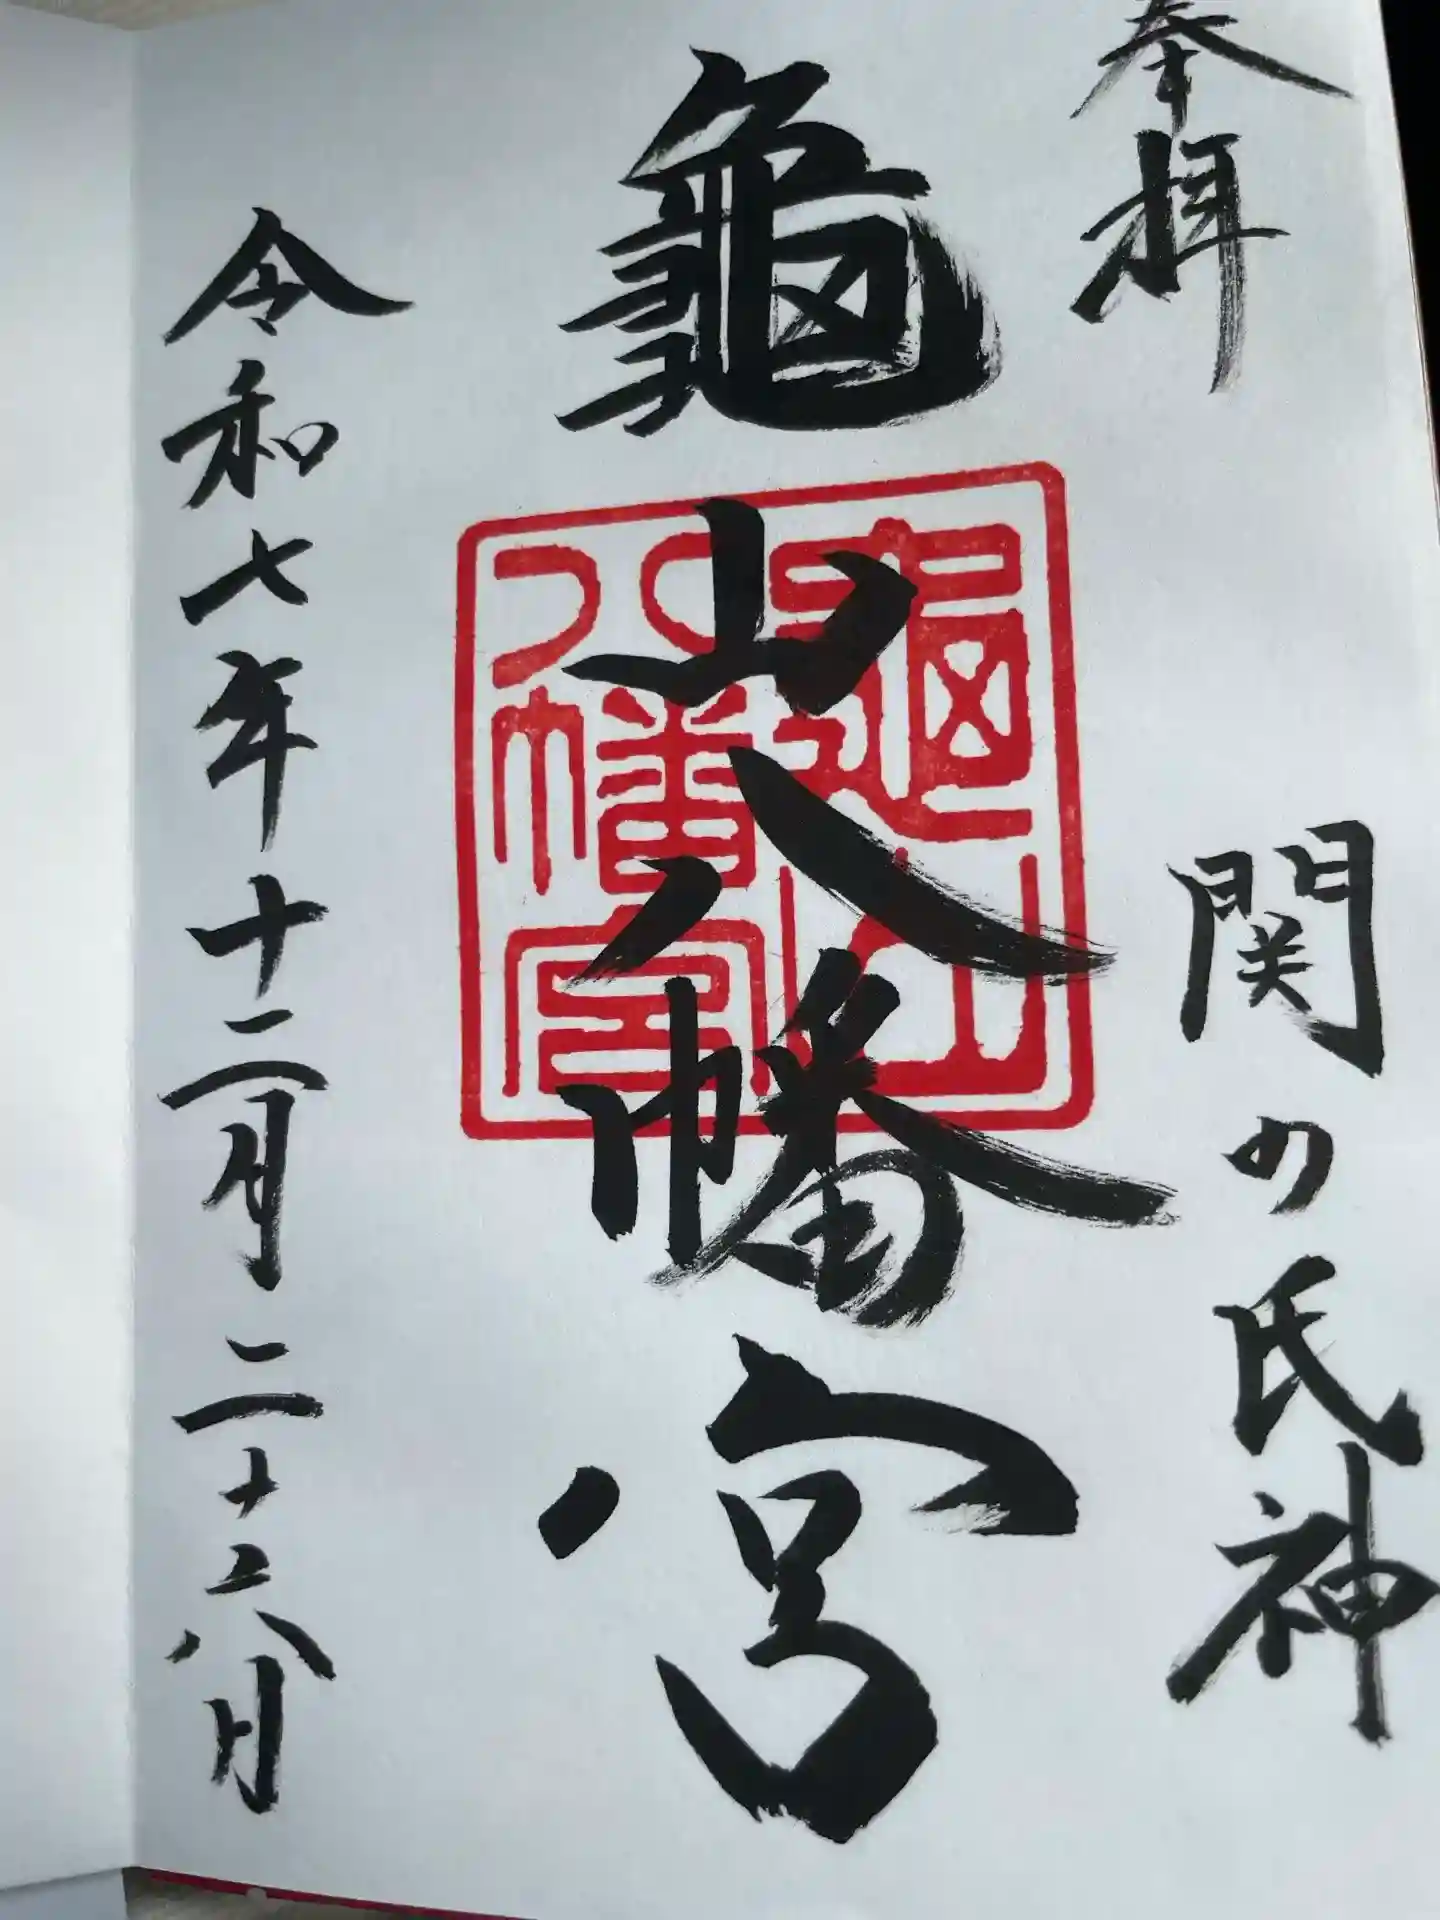 奉拝
関の氏神
龜山八幡宮
龜山八幡宮
令和七年十二月二十六日